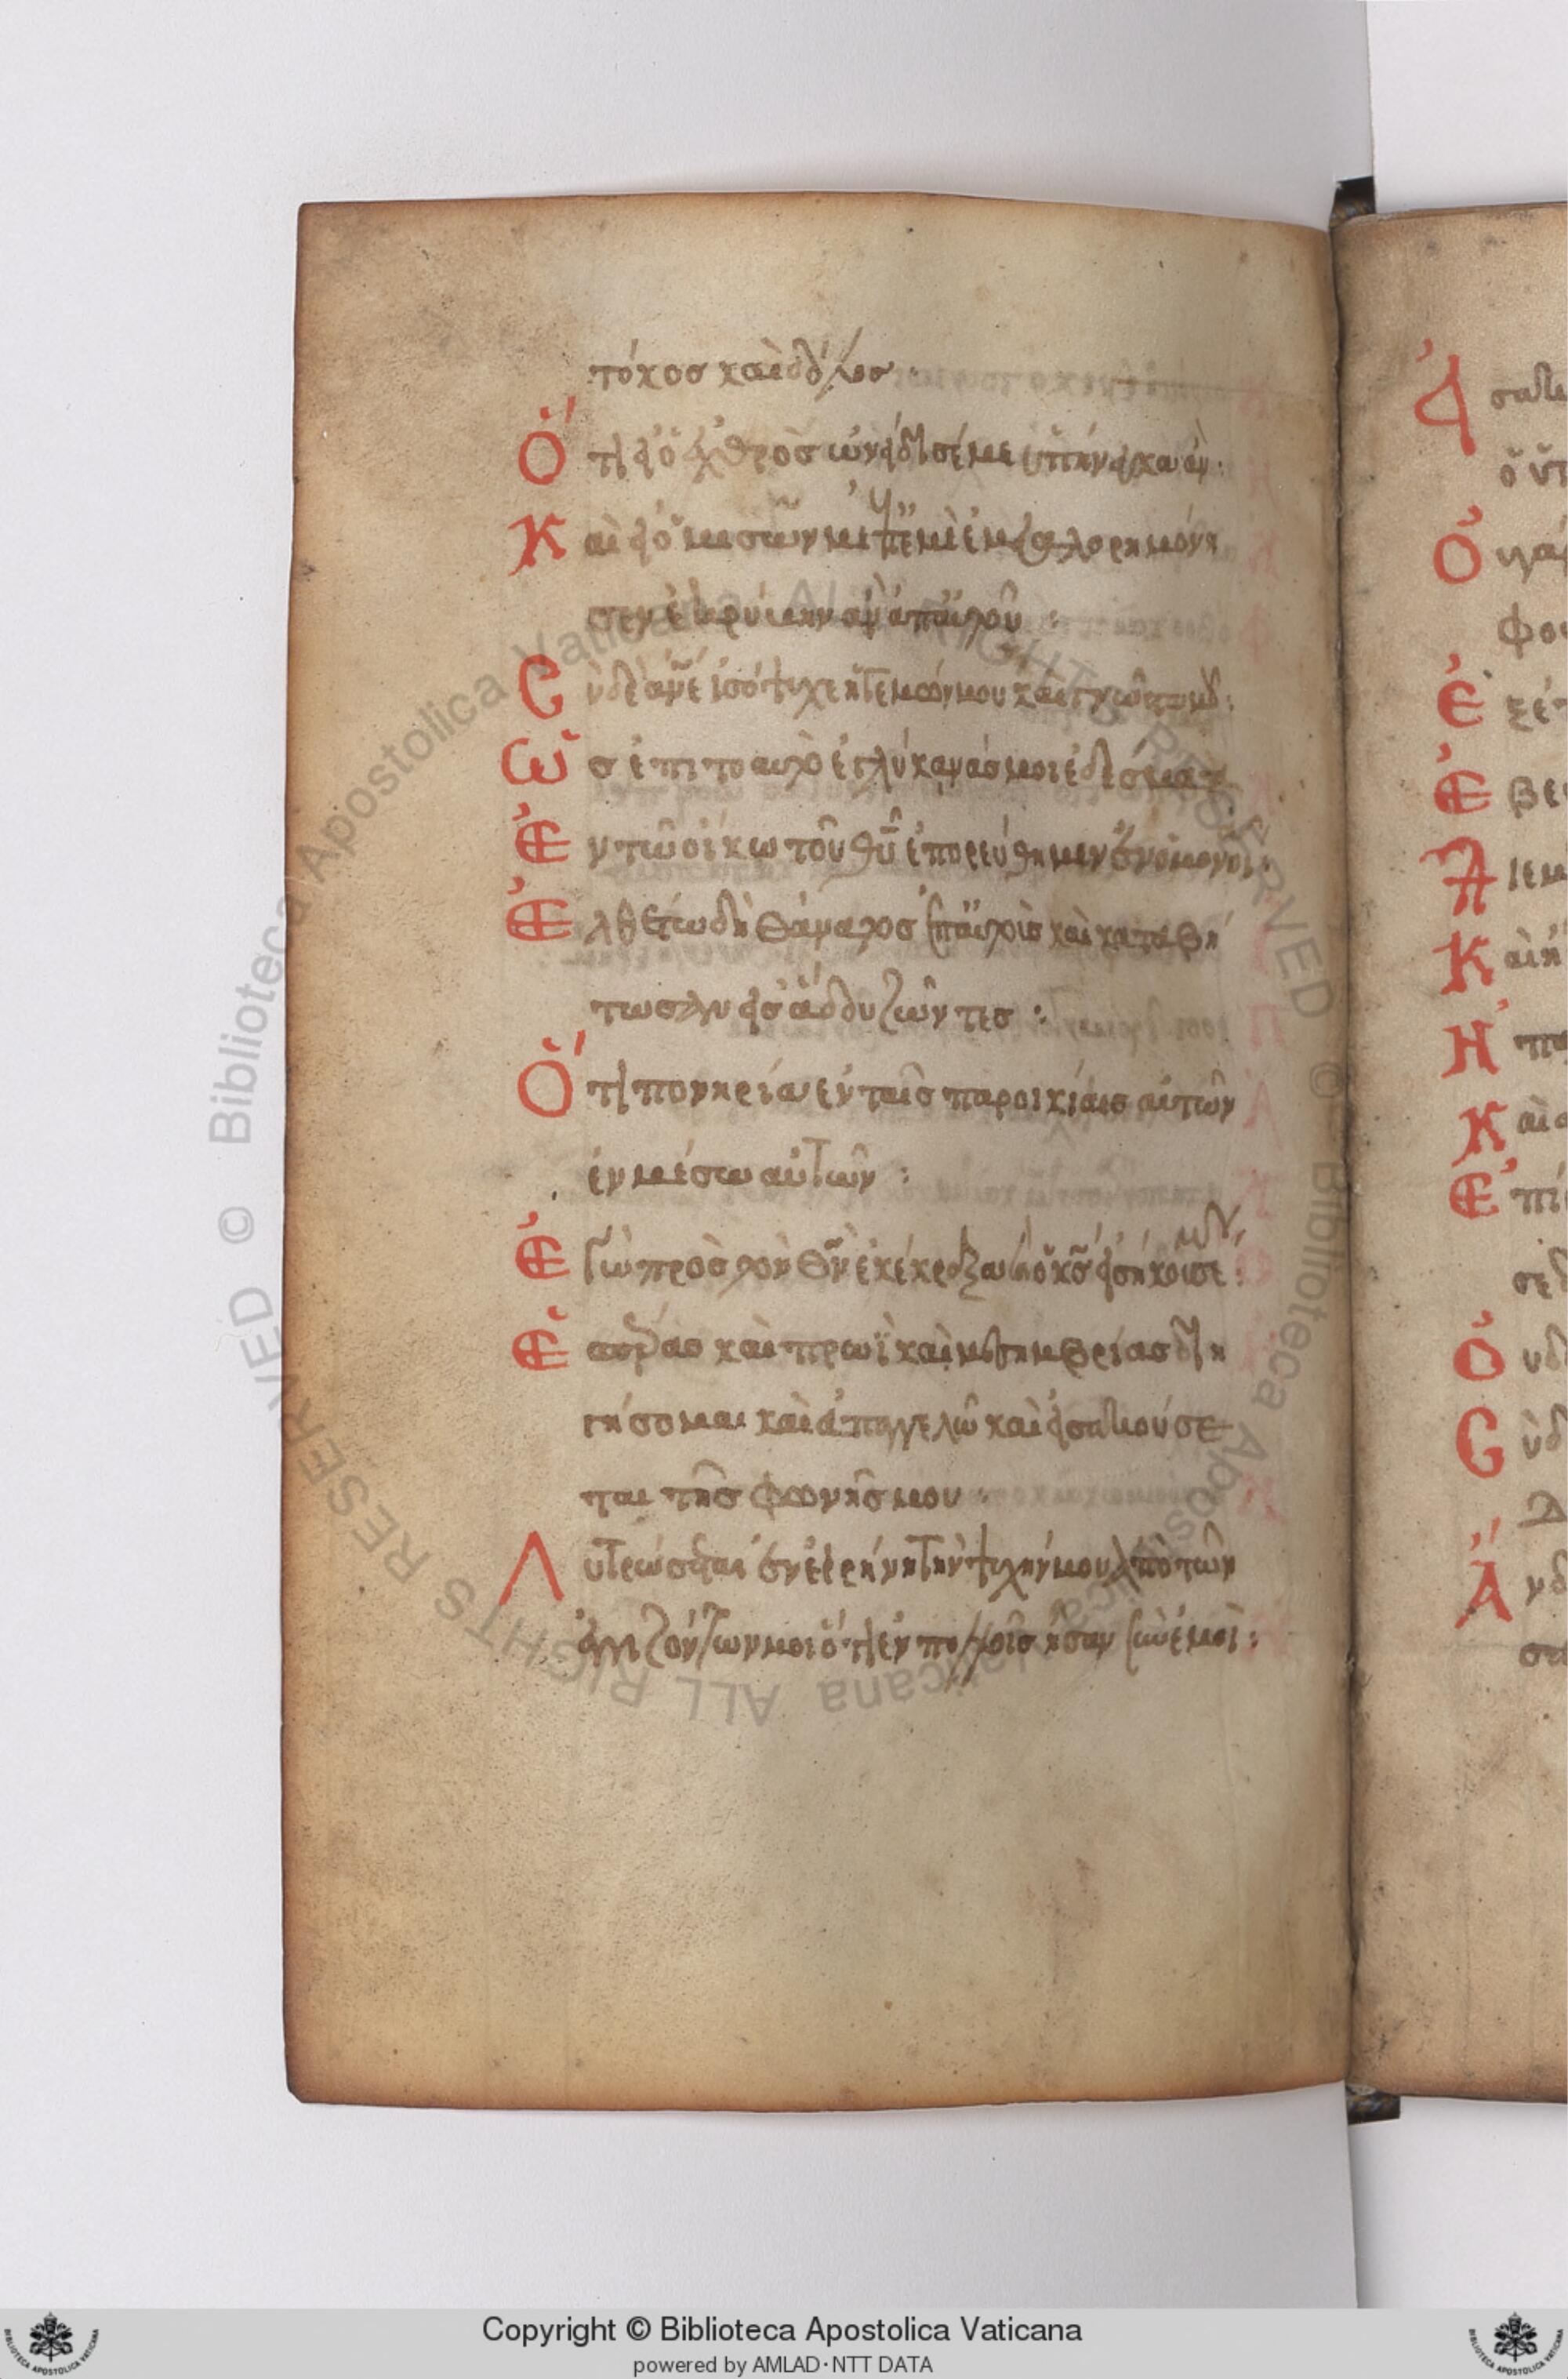 τόκοσ καὶ δόλοσ :
Ὅτι εἰ ὁ ἐχθρὸσ ὠνείδισέ με ὑπήνεγκα ἂν :
Καὶ εἰ ὁ μισῶν με ἐπ' ἐμὲ ἐμεγαλορημόνη
σεν ἐκρύβην ἂν ἀπ' αὐτοῦ :
Cὺ δὲ ἄνε ἰσόψυχε ἡγεμών μου καὶ γνωστέ μου :
Ὡσ ἐπιτοαυτὸ ἐγλύκανάσ μοι ἐδέσματα
Ἐν τῶ οἴκω τοῦ θῦ ἐπορεύθημεν ἐν ὁμονοία :
Ἐλθέτω δὴ θάνατοσ ἐπ' αὐτοὺσ καὶ καταβή
τωσαν εἰσ ἅδου ζῶντεσ :
Ὅτι πονηρία ἐν ταῖσ παροικίαισ αὐτῶν
ἐν μέσω αὐτῶν :
Ἐγὼ πρὸσ τὸν θν ἐκέκραξα καὶ ὁ κσ εἰσήκουσέ μου :
Ἑσπέρασ καὶ πρωῒ καὶ μεσημβρίασ διη
γήσομαι καὶ ἀπαγγελῶ καὶ εἰσακούσε
ται τῆσ φωνῆσ μου :
Λυτρώσεται ἐν εἰρήνη τὴν ψυχήν μου ἀπὸ τῶν
ἐγγιζόντων μοι ὅτι ἐν πολλοῖσ ἦσαν σὺν ἐμοὶ :
Copyright © Biblioteca Apostolica Vaticana
powered by AMLAD·NTT DATA